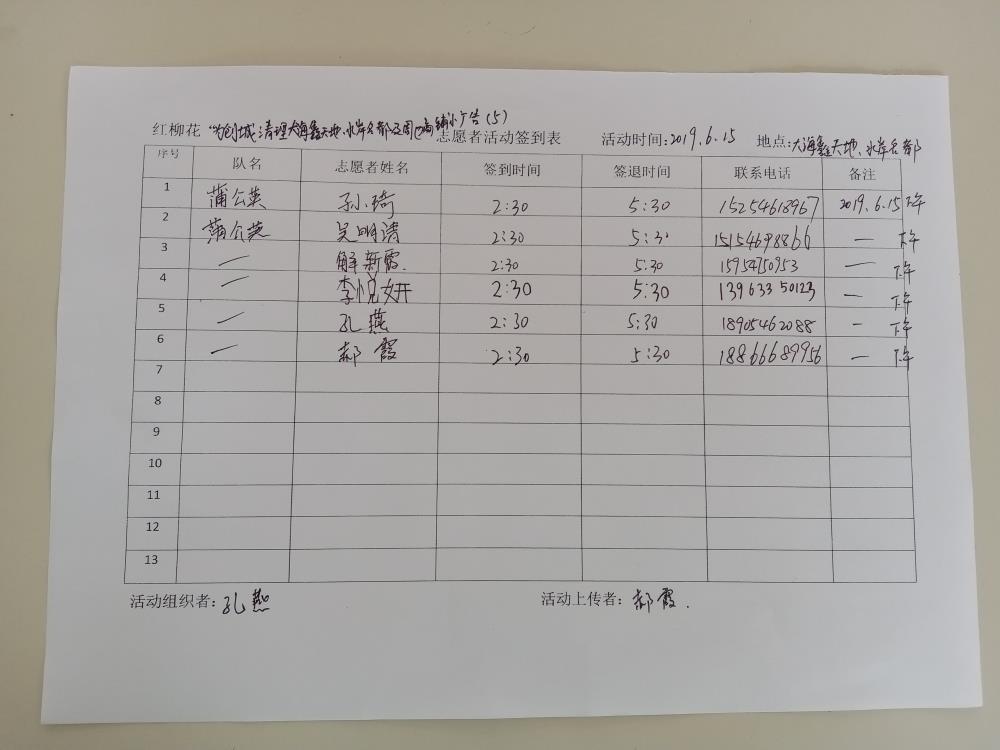 红柳花"为创城清理大海鑫天地、水岸名都及周边商铺小广告(5)志愿者活动签到表 活动时间:2019.6.15 地点:大海鑫天地、水岸名都
序号 队名 志愿者姓名 签到时间 签退时间 联系电话 备注
1 蒲公英 孙琦 2:30 5:30 15254618967 2019.6.15下午
2 蒲公英 吴明清 2:30 5:30 15154698866 — 下午
3 — 解新霞. 2:30 5:30 15954750953 — 下午
4 — 李悦妍 2:30 5:30 13963350123 — 下午
5 — 孔燕 2:30 5:30 18905462088 — 下午
6 — 郝霞 2:30 5:30 18866689956 — 下午
7
8
9
10
11
12
13
活动组织者:孔燕 活动上传者:郝霞.